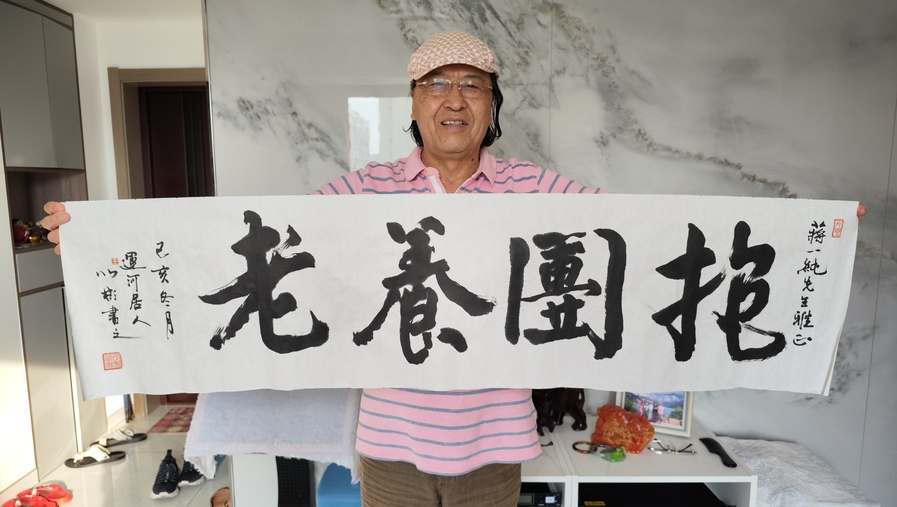 蔣一純先生雅正
抱團養老
己亥冬月
運河居人
以彬書之